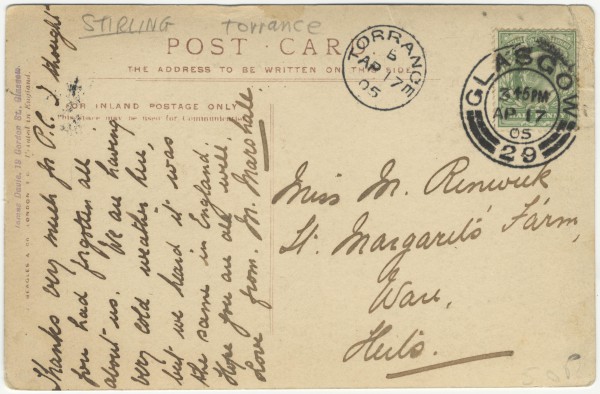 STIRLING Torrance
POST CARD
THE ADDRESS TO BE WRITTEN ON THIS SIDE
FOR INLAND POSTAGE ONLY
This Space may be used for Communication
TORRANCE
B
AP 17
05
GLASGOW
3.45 PM
AP 17
05
29
Thanks very much for P.C. I thought
you had forgotten all
about us. We are having
very cold weather here,
but we heard it was
the same in England.
Hope you are all well.
Love from. M. Marshall.
Miss M. Renwick
St. Margaret's Farm,
Ware,
Herts.
James Davie, 19 Gordon St., Glasgow